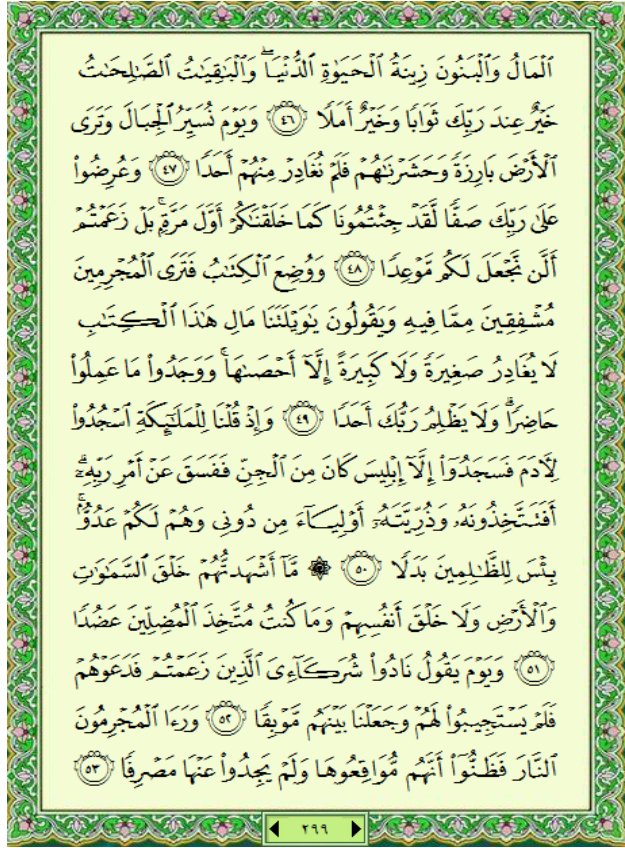 ٱلۡمَالُ وَٱلۡبَنُونَ زِينَةُ ٱلۡحَيَوٰةِ ٱلدُّنۡيَاۖ وَٱلۡبَٰقِيَٰتُ ٱلصَّٰلِحَٰتُ
خَيۡرٌ عِندَ رَبِّكَ ثَوَابٗا وَخَيۡرٌ أَمَلٗا ٤٦ وَيَوۡمَ نُسَيِّرُ ٱلۡجِبَالَ وَتَرَى
ٱلۡأَرۡضَ بَارِزَةٗ وَحَشَرۡنَٰهُمۡ فَلَمۡ نُغَادِرۡ مِنۡهُمۡ أَحَدٗا ٤٧ وَعُرِضُواْ
عَلَىٰ رَبِّكَ صَفّٗا لَّقَدۡ جِئۡتُمُونَا كَمَا خَلَقۡنَٰكُمۡ أَوَّلَ مَرَّةِۭۚ بَلۡ زَعَمۡتُمۡ
أَلَّن نَّجۡعَلَ لَكُم مَّوۡعِدٗا ٤٨ وَوُضِعَ ٱلۡكِتَٰبُ فَتَرَى ٱلۡمُجۡرِمِينَ
مُشۡفِقِينَ مِمَّا فِيهِ وَيَقُولُونَ يَٰوَيۡلَتَنَا مَالِ هَٰذَا ٱلۡكِتَٰبِ
لَا يُغَادِرُ صَغِيرَةٗ وَلَا كَبِيرَةً إِلَّآ أَحۡصَىٰهَاۚ وَوَجَدُواْ مَا عَمِلُواْ
حَاضِرٗاۗ وَلَا يَظۡلِمُ رَبُّكَ أَحَدٗا ٤٩ وَإِذۡ قُلۡنَا لِلۡمَلَٰٓئِكَةِ ٱسۡجُدُواْ
لِأٓدَمَ فَسَجَدُوٓاْ إِلَّآ إِبۡلِيسَ كَانَ مِنَ ٱلۡجِنِّ فَفَسَقَ عَنۡ أَمۡرِ رَبِّهِۦٓۗ
أَفَتَتَّخِذُونَهُۥ وَذُرِّيَّتَهُۥٓ أَوۡلِيَآءَ مِن دُونِي وَهُمۡ لَكُمۡ عَدُوُّۢۚ
بِئۡسَ لِلظَّٰلِمِينَ بَدَلٗا ٥٠ ۞ مَّآ أَشۡهَدتُّهُمۡ خَلۡقَ ٱلسَّمَٰوَٰتِ
وَٱلۡأَرۡضِ وَلَا خَلۡقَ أَنفُسِهِمۡ وَمَا كُنتُ مُتَّخِذَ ٱلۡمُضِلِّينَ عَضُدٗا
٥١ وَيَوۡمَ يَقُولُ نَادُواْ شُرَكَآءِيَ ٱلَّذِينَ زَعَمۡتُمۡ فَدَعَوۡهُمۡ
فَلَمۡ يَسۡتَجِيبُواْ لَهُمۡ وَجَعَلۡنَا بَيۡنَهُم مَّوۡبِقٗا ٥٢ وَرَءَا ٱلۡمُجۡرِمُونَ
ٱلنَّارَ فَظَنُّوٓاْ أَنَّهُم مُّوَاقِعُوهَا وَلَمۡ يَجِدُواْ عَنۡهَا مَصۡرِفٗا ٥٣
٢٩٩